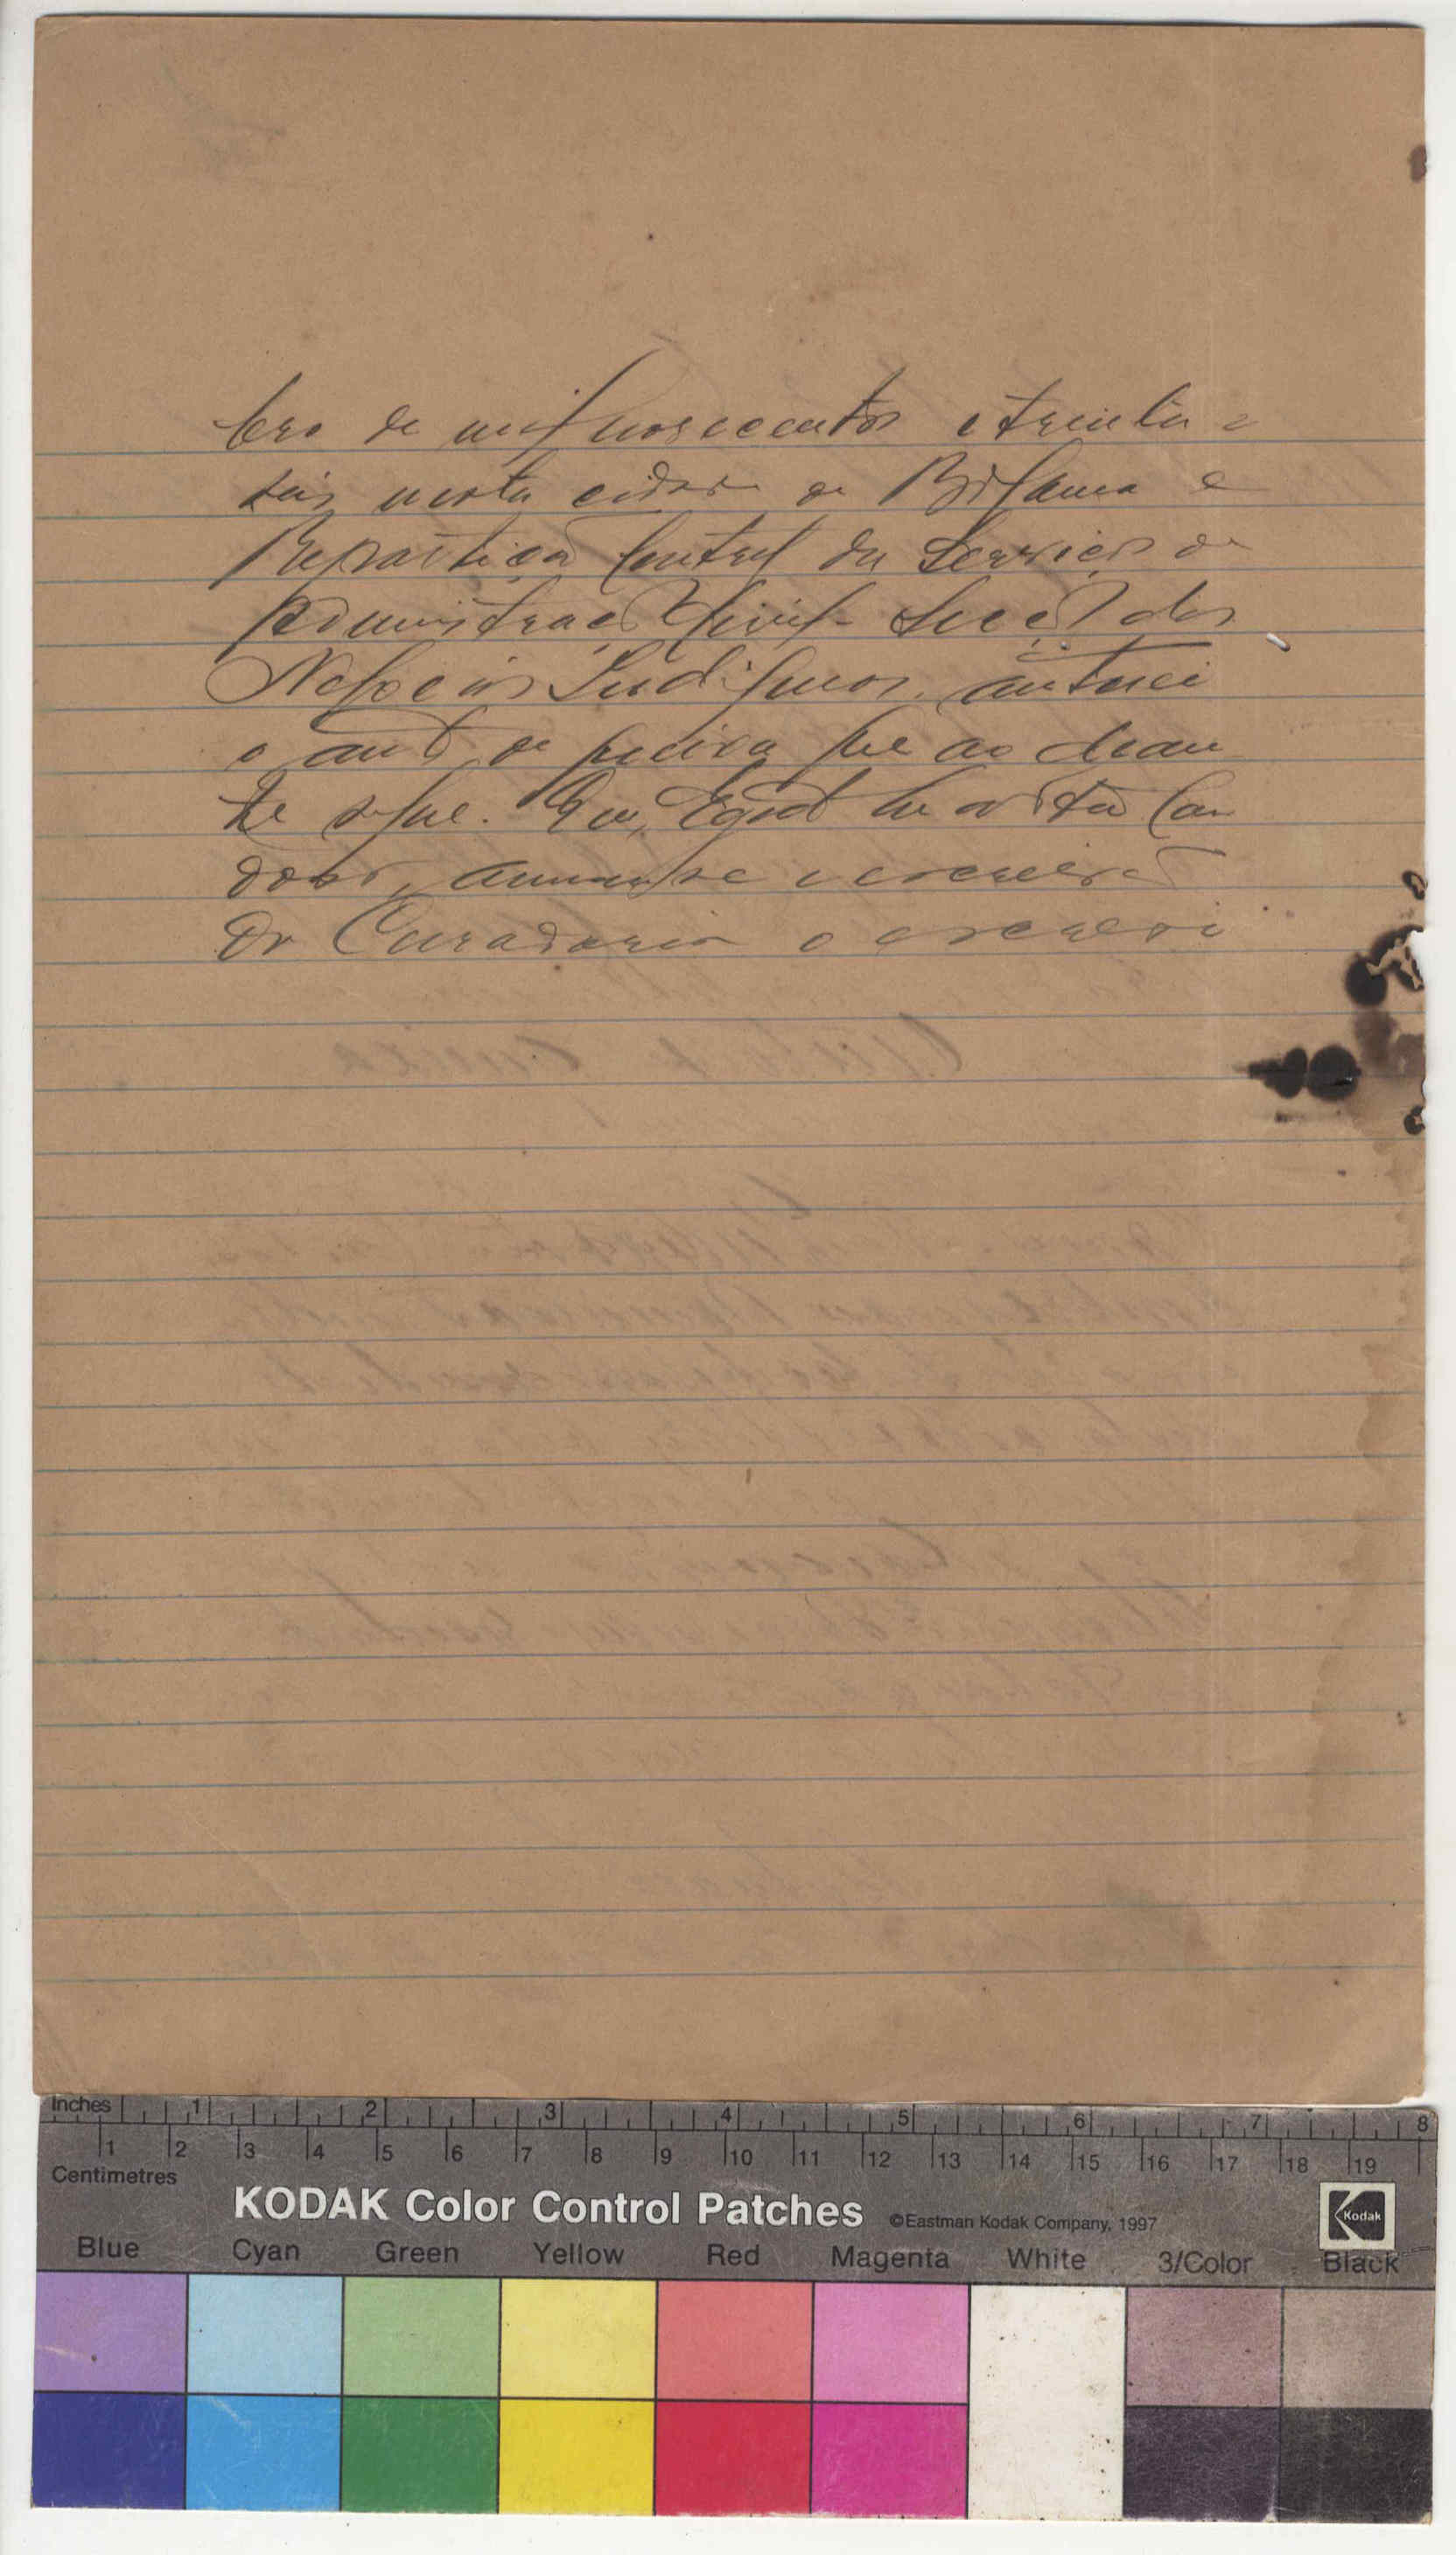 bro de mil novecentos e trinta e
seis nesta cidade de Bolama e
Repartição Central dos Serviços de
Administração Civil - Secção dos
Negocios Indigenas, autuei
o auto de que ao dean
te segue. Eu,
amanuense e escrivão
da Curadoria o escrevi
Inches 1 2 3 4 5 6 7 8
1 2 3 4 5 6 7 8 9 10 11 12 13 14 15 16 17 18 19
Centimetres
KODAK Color Control Patches ©Eastman Kodak Company, 1997 Kodak
Blue Cyan Green Yellow Red Magenta White 3/Color Black